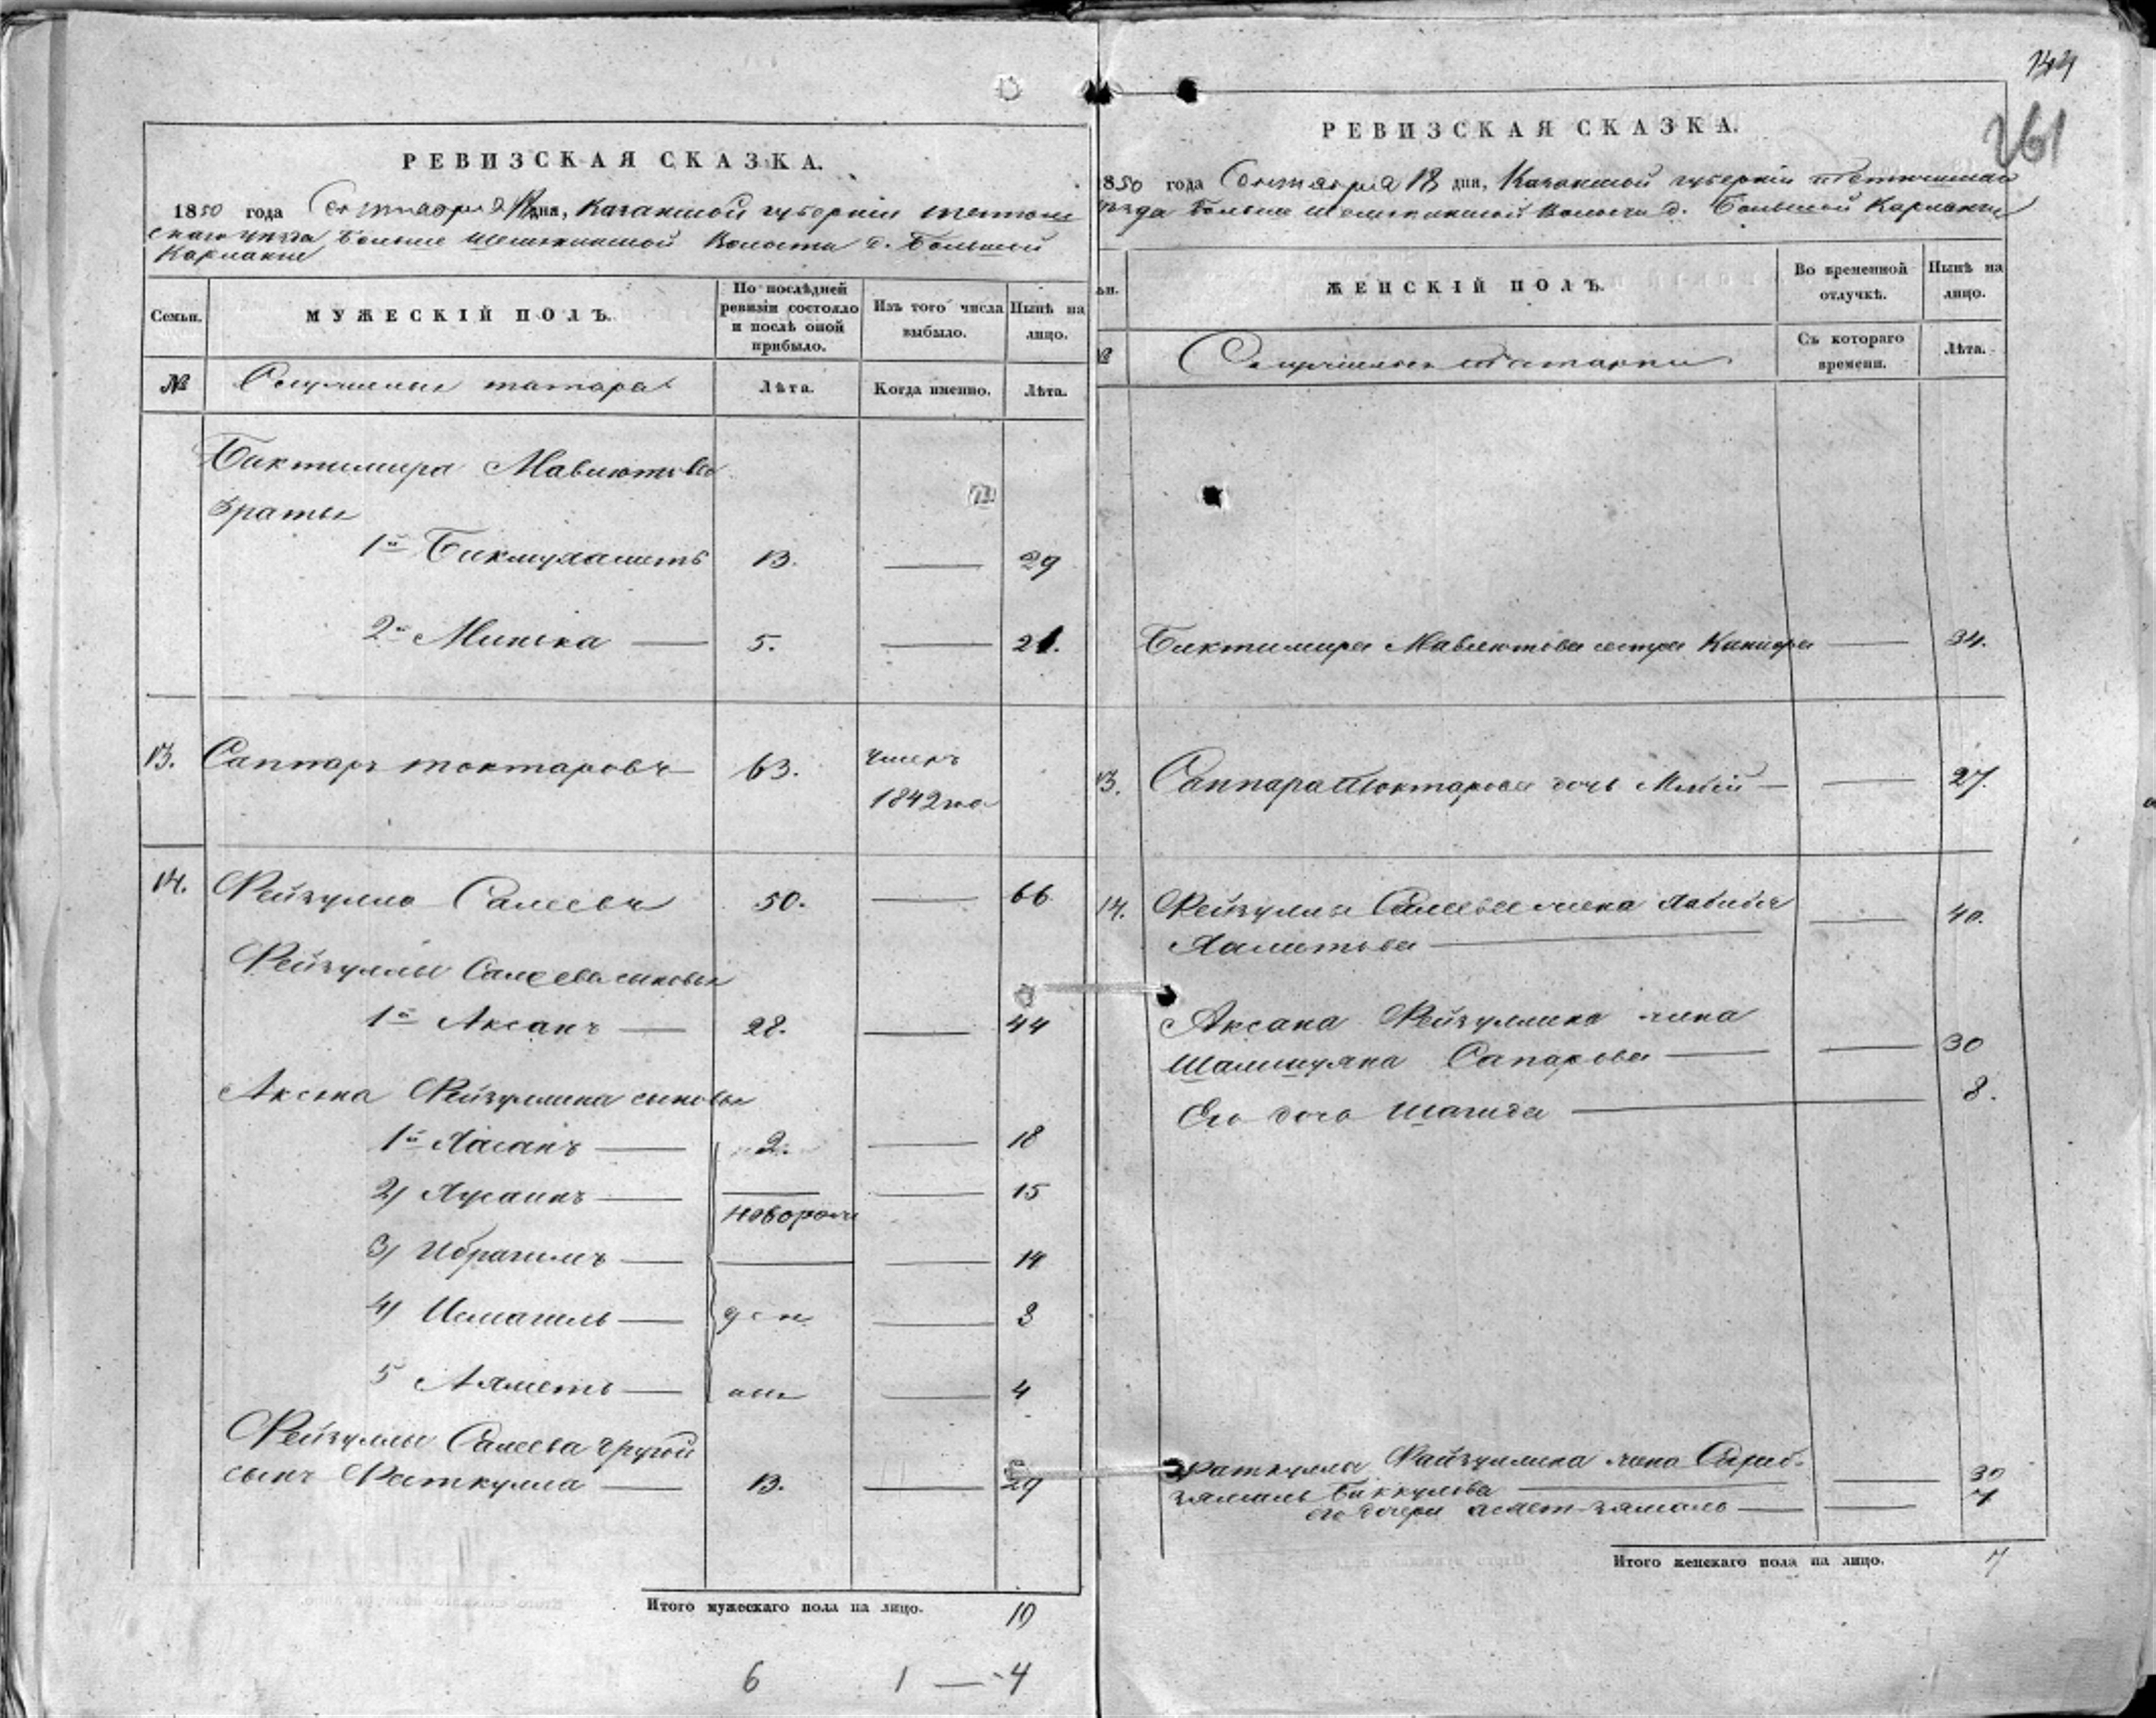 РЕВИЗСКАЯ СКАЗКА.
1850 года Октября 18 дня, Казанской губернии тетюш
скаго уезда Больше Шемякинской Волости д. Большой
Карланги
Семьи.
МУЖЕСКІЙ ПОЛЪ.
По послѣдней ревизіи состояло и послѣ оной прибыло.
Изъ того числа выбыло.
Нынѣ на лицо.
№
татара
Лѣта.
Когда именно.
Лѣта.
Биктимира Мавлютова
Братья
1й Бикмухаметъ 13. 29
2й Минька 5. 21.
13. Саппаръ токтаровъ 63. умеръ
1842го
14. Фейзулла Салеевъ 50. 66
Фейзуллы Салеева сыновья
1й Аксанъ 28. 44
Аксана Фейзуллина сыновья
1й Хасанъ 2. 18
2) Хусаинъ 15
новорож
3) Ибрагимъ 14
4) Исмагиль ден 3
5 Ахметь ные 4
Фейзуллы Салеева другой
сынъ Фаткулла 13. 29
Итого мужескаго пола на лицо. 10
6 1 — 4
261
РЕВИЗСКАЯ СКАЗКА.
1850 года Октября 18 дня, Казанской губернии тетюшскаго
уезда Больше Шемякинской Волости д. Большой Карланги
ЖЕНСКІЙ ПОЛЪ.
Во временной отлучкѣ.
Нынѣ на лицо.
татарки
Съ котораго времени.
Лѣта.
Биктимира Мавлютова сестра 34.
13. Саппара Токтарова дочь 27.
14. Фейзуллы Салеева жена Хабиба 40.
Хаметова
Аксана Фейзуллина жена
Сапарова 30
Его дочь Шагида 8.
Фаткуллы Файзуллина жена
зямаль Биккулова 30
его дочери зямаль
Итого женскаго пола на лицо. 7